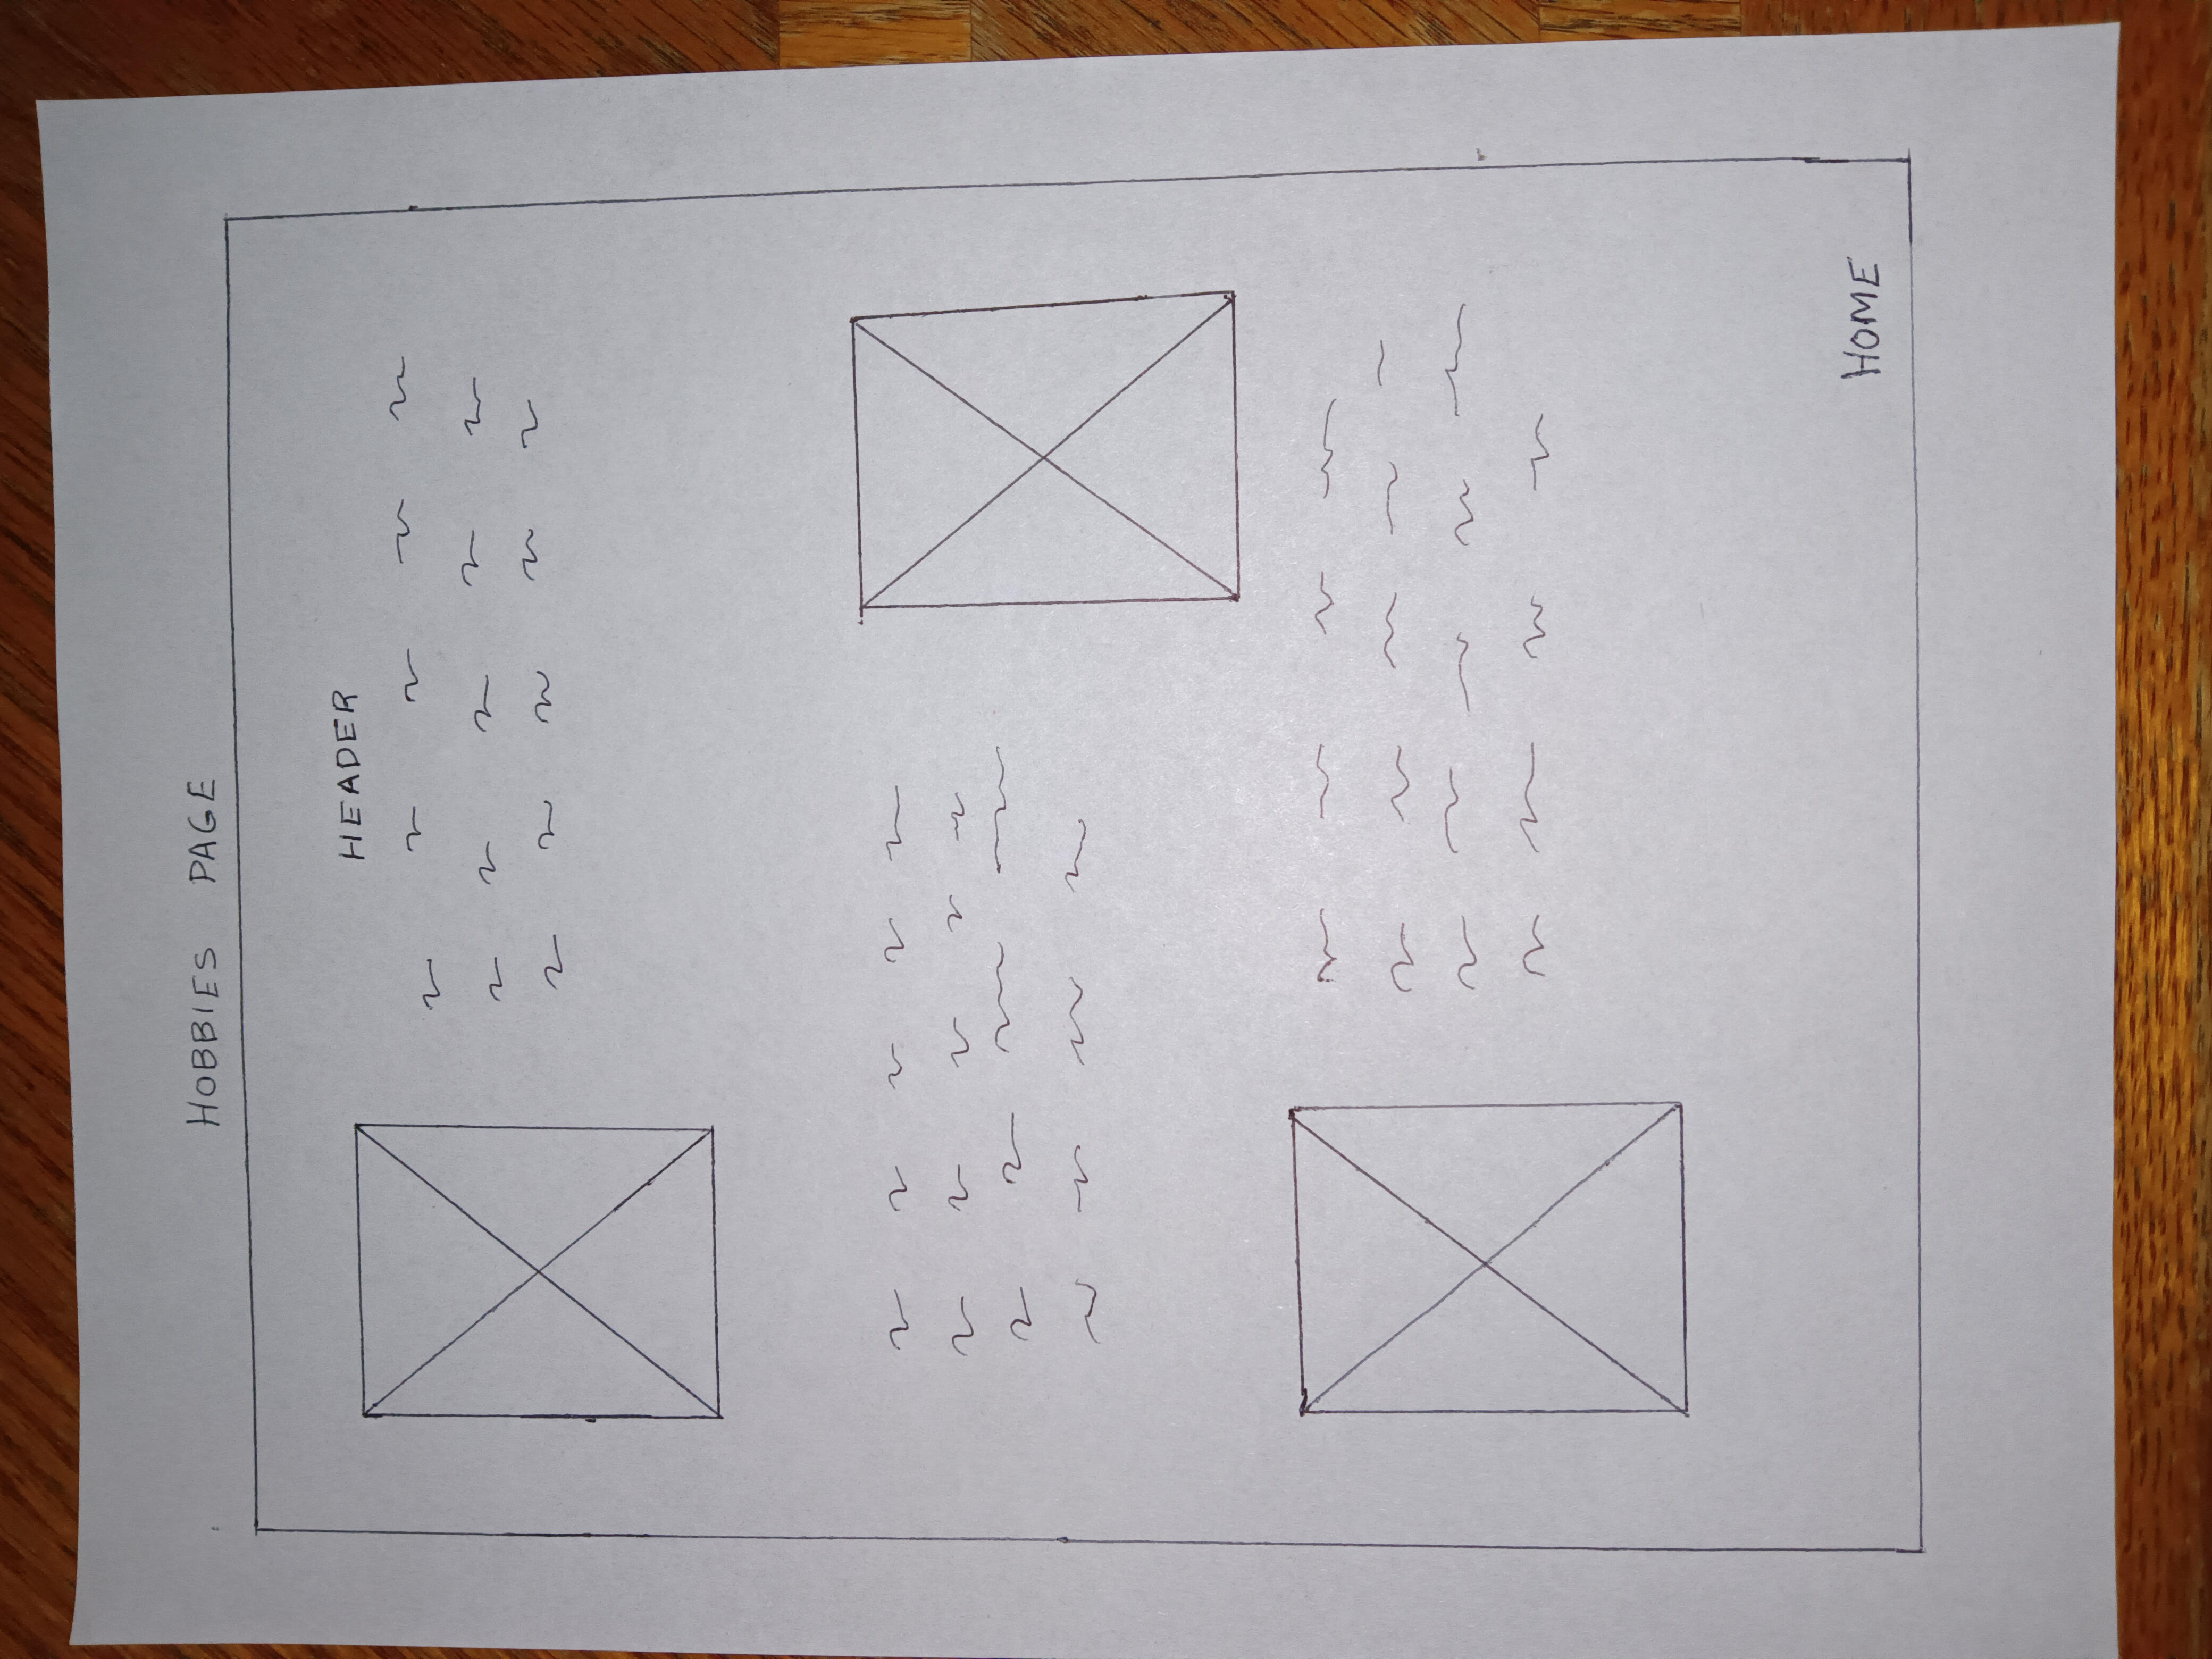 HOBBIES PAGE
HEADER
HOME